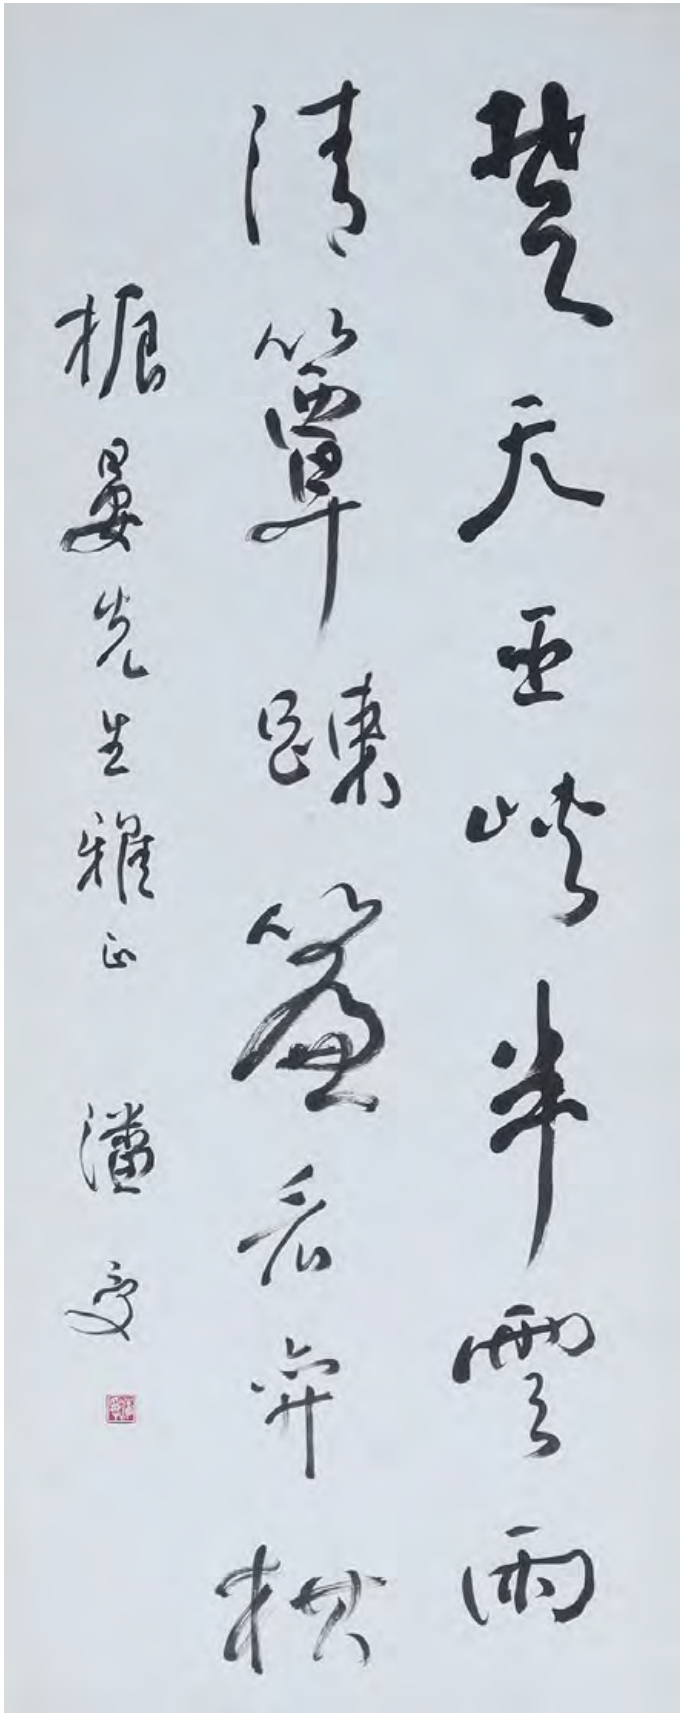 楚天巫峽半雲雨
清簟踈簾看弈棋
晏先生雅正 潘受